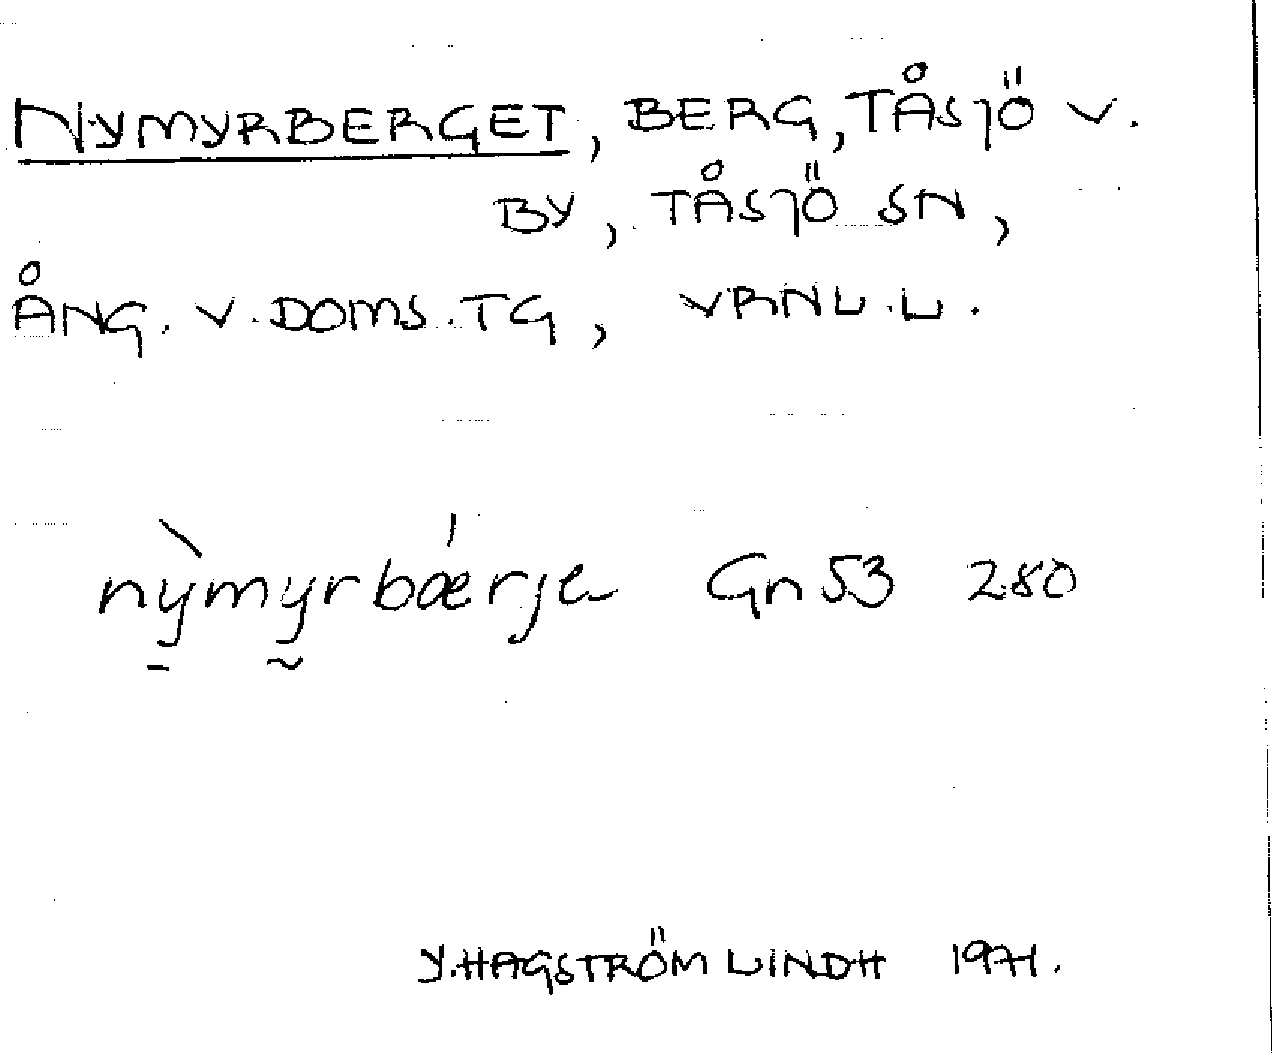 NYMYRBERGET, BERG, TÅSJÖ V.
BY, TÅSJÖ SN,
ÅNG. V. DOMS. TG, VRNL. L.
nỳmyrbǽrje Gn 53 280
Y. HAGSTRÖM LINDH 1971.